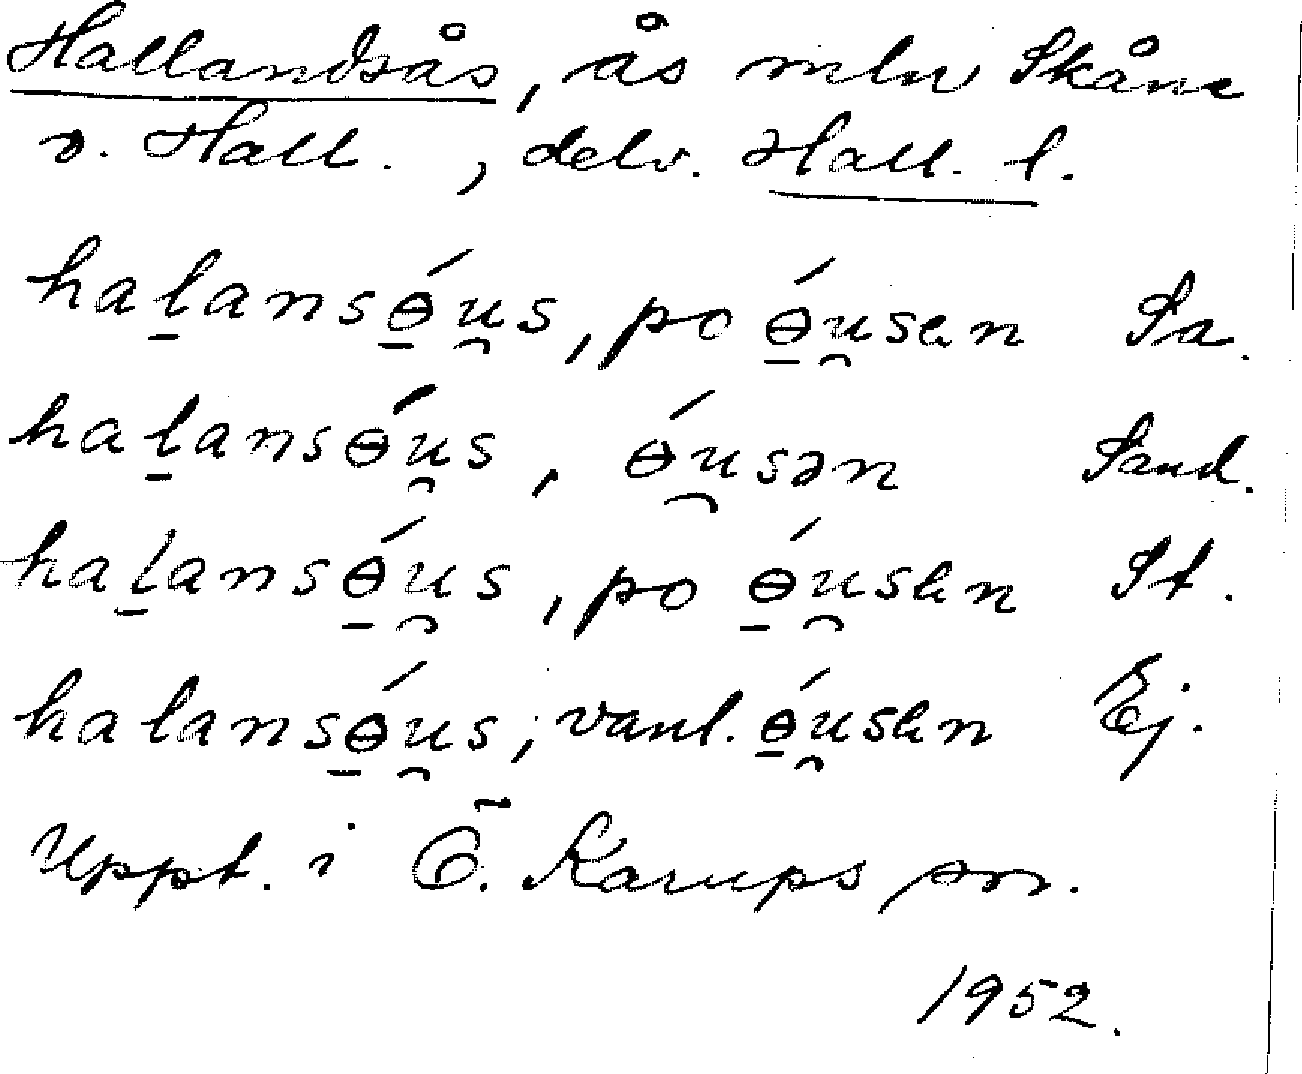 Hallandsås, ås mln Skåne
o. Hall., delv. Hall. l.
ha̱ḻansɵ̱́u̯s, po ɵ̱́u̯sen Sa.
haḻansɵ́u̯s, ɵ́u̯sən Sand.
haḻansɵ̱́u̯s, po ɵ̱́u̯sen St.
halansɵ̱́u̯s, vanl. ɵ̱́u̯sen Ej.
Uppt. i Ö. Karups sn.
1952.